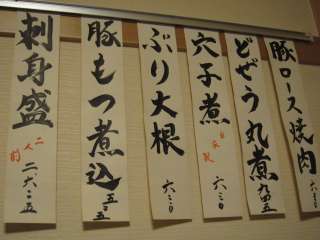 豚ロース焼肉 六三〇
どぜう丸煮 九四五
穴子煮 六三〇
ぶり大根 六三〇
豚もつ煮込 五二五
刺身盛 二人前 二六二五